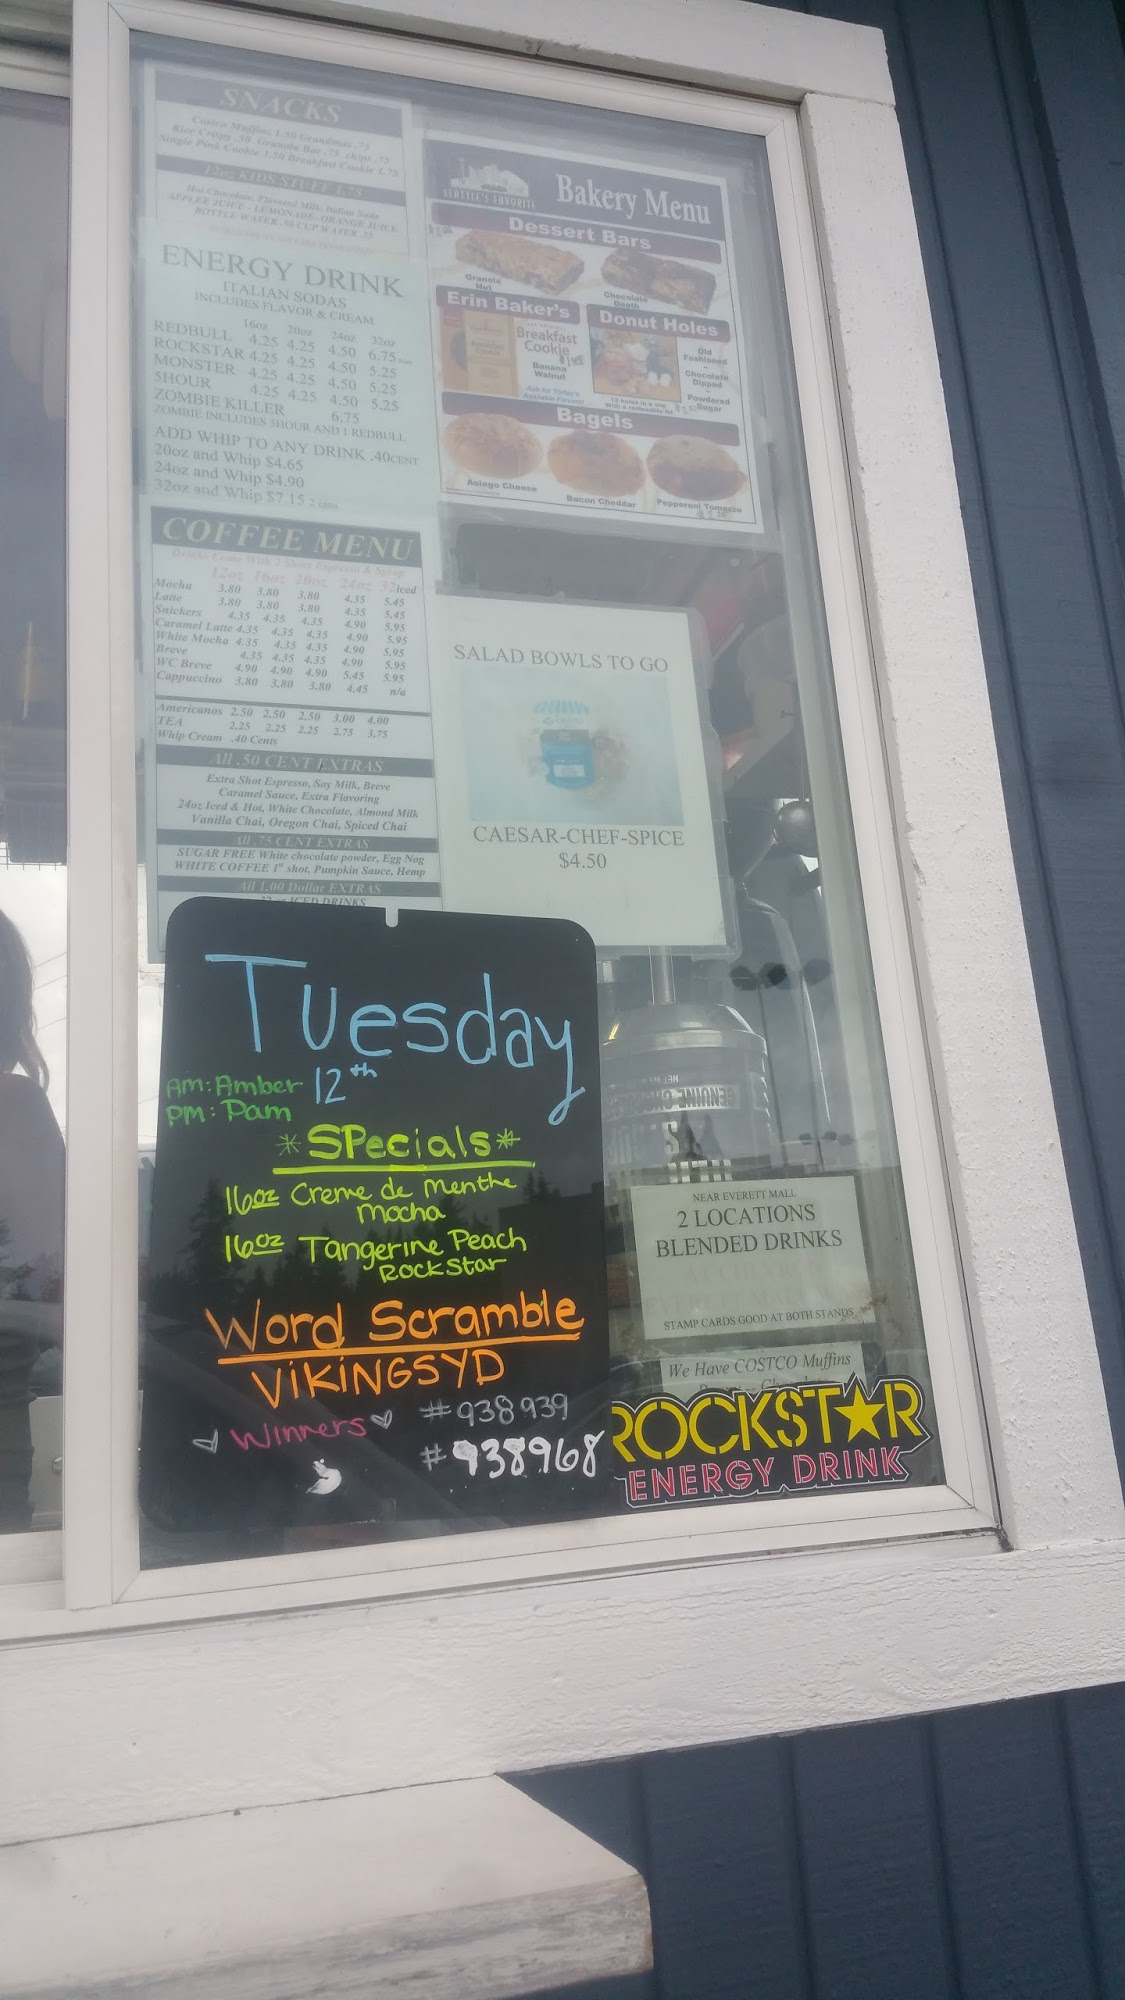 SNACKS
Costco Muffins 1.50 Grandmas .75
Rice Crispy .50 Granola Bar .75 chips .75
Single Pink Cookie 1.50 Breakfast Cookie 1.75
12oz KIDS STUFF 1.75
Hot Chocolate, Flavored Milk, Italian Soda
APPLE JUICE - LEMONADE-ORANGE JUICE
BOTTLE WATER .50 CUP WATER .25
ENERGY DRINK
ITALIAN SODAS
INCLUDES FLAVOR & CREAM
16oz 20oz 24oz 32oz
REDBULL 4.25 4.25 4.50 6.75
ROCKSTAR 4.25 4.25 4.50 5.25
MONSTER 4.25 4.25 4.50 5.25
5HOUR 4.25 4.25 4.50 5.25
ZOMBIE KILLER 6.75
ZOMBIE INCLUDES 5HOUR AND 1 REDBULL
ADD WHIP TO ANY DRINK .40CENT
20oz and Whip $4.65
24oz and Whip $4.90
32oz and Whip $7.15 2 cans
COFFEE MENU
Drinks Come With 2 Shots Espresso & Syrup
12oz 16oz 20oz 24oz 32iced
Mocha 3.80 3.80 3.80 4.35 5.45
Latte 3.80 3.80 3.80 4.35 5.45
Snickers 4.35 4.35 4.35 4.90 5.95
Caramel Latte 4.35 4.35 4.35 4.90 5.95
White Mocha 4.35 4.35 4.35 4.90 5.95
Breve 4.35 4.35 4.35 4.90 5.95
WC Breve 4.90 4.90 4.90 5.45 5.95
Cappuccino 3.80 3.80 3.80 4.45 n/a
Americanos 2.50 2.50 2.50 3.00 4.00
TEA 2.25 2.25 2.25 2.75 3.75
Whip Cream .40 Cents
All .50 CENT EXTRAS
Extra Shot Espresso, Soy Milk, Breve
Caramel Sauce, Extra Flavoring
24oz Iced & Hot, White Chocolate, Almond Milk
Vanilla Chai, Oregon Chai, Spiced Chai
All .75 CENT EXTRAS
SUGAR FREE White chocolate powder, Egg Nog
WHITE COFFEE 1st shot, Pumpkin Sauce, Hemp
All 1.00 Dollar EXTRAS
32oz ICED DRINKS
SEATTLE'S FAVORITE
Bakery Menu
Dessert Bars
Granola
Nut
Chocolate
Death
Erin Baker's
Breakfast
Cookie
Banana
Walnut
Ask for Today's
Available Flavors!
Donut Holes
Old
Fashioned
Chocolate
Dipped
Powdered
Sugar
12 holes in a cup
With a recloseable lid
Bagels
Asiago Cheese
Bacon Cheddar
Pepperoni Tomazzo
SALAD BOWLS TO GO
CAESAR-CHEF-SPICE
$4.50
Tuesday
12th
AM: Amber
PM: Pam
*Specials*
16oz Creme de Menthe
Mocha
16oz Tangerine Peach
Rockstar
Word Scramble
ViKiNGSYD
Winners
#938939
#938968
NEAR EVERETT MALL
2 LOCATIONS
BLENDED DRINKS
STAMP CARDS GOOD AT BOTH STANDS
We Have COSTCO Muffins
ROCKSTAR
ENERGY DRINK